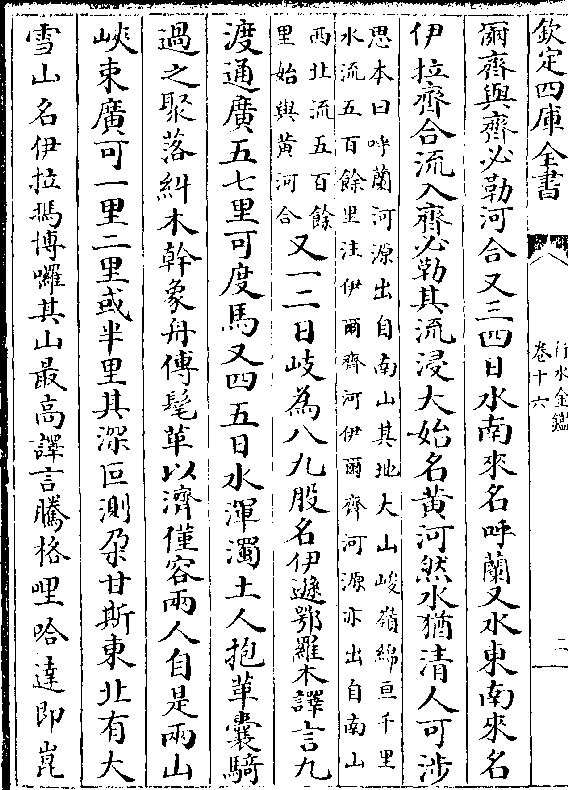 欽定四庫全書
行水金鑑
卷十六
二
爾齊與齊必勒河合又三四日水南來名呼蘭又水東南來名
伊拉齊合流入齊必勒其流浸大始名黃河然水猶清人可涉
思本曰呼蘭河源出自南山其地大山峻嶺綿亘千里
水流五百餘里注伊爾齊河伊爾齊河源亦出自南山
西北流五百餘
里始與黃河合
又一二日岐為八九股名伊遜鄂羅木譯言九
渡通廣五七里可度馬又四五日水渾濁土人抱革囊騎
過之聚落糾木幹象舟傅髦革以濟僅容兩人自是兩山
峽束廣可一里二里或半里其深叵測朶甘斯東北有大
雪山名伊拉瑪博囉其山最高譯言騰格哩哈達即崑